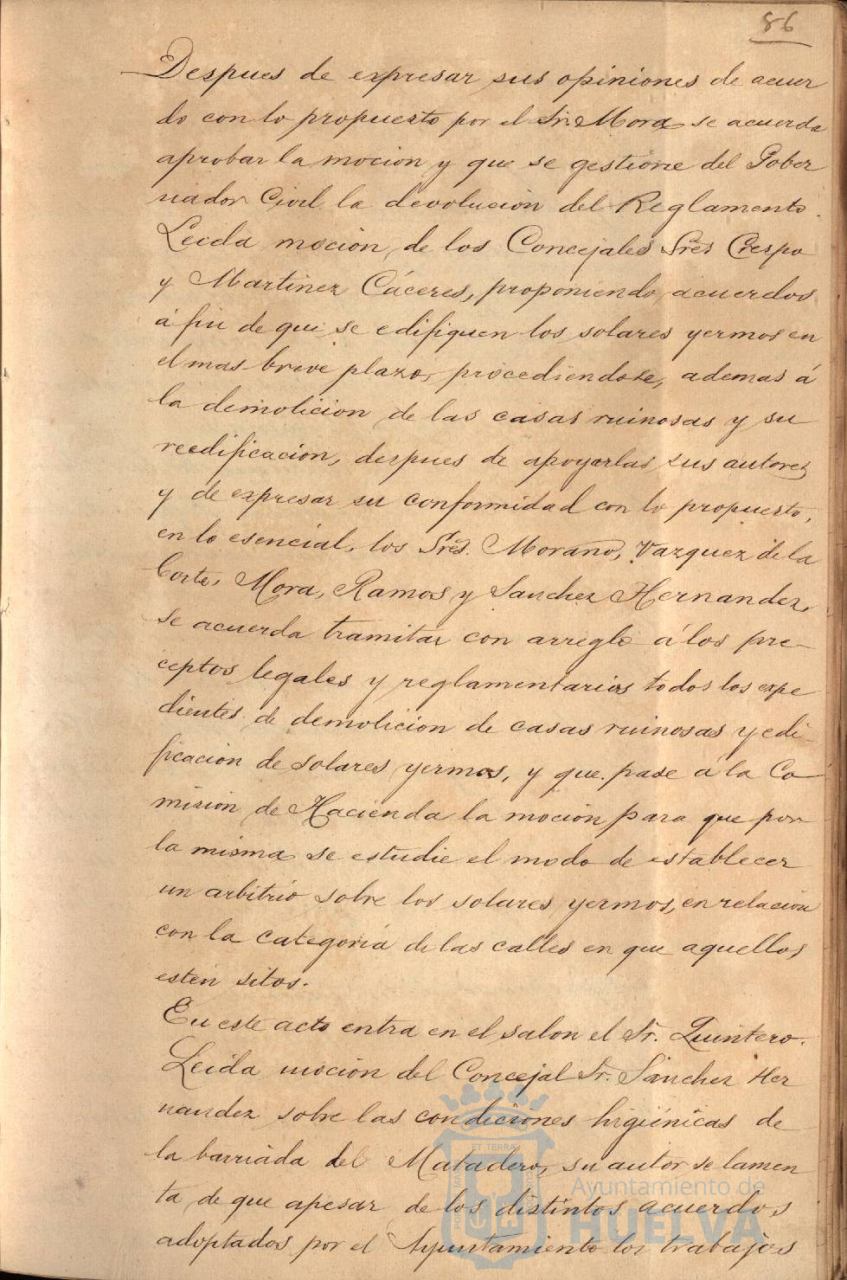 86
Despues de expresar sus opiniones de acuer
do con lo propuesto por el Sr. Mora se acuerda
aprobar la mocion y que se gestione del Gober
nador Civil la devolución del Reglamento.
Leida moción, de los Concejales Sres Crespo
y Martinez Cáceres, proponiendo acuerdos
á fin de que se edifiquen los solares yermos en
el mas breve plazo, procediendose, ademas á
la demolicion de las casas ruinosas y su
reedificacion, despues de apoyarlas sus autores
y de expresar su conformidad con lo propuesto,
en lo esencial, los Sres. Morano, Vazquez de la
Corte, Mora, Ramos y Sanchez Hernandez,
se acuerda tramitar con arreglo á los pre-
ceptos legales y reglamentarios todos los expe
dientes de demolicion de casas ruinosas y edi-
ficacion de solares yermos, y que pase a la Co-
mision de Hacienda la moción para que por
la misma se estudie el modo de establecer
un arbitrio sobre los solares yermos, en relación
con la categoría de las calles en que aquellos
esten sitos.
En este acto entra en el salon el Sr. Quintero.
Leida moción del Concejal Sr. Sanchez Her
nandez sobre las condiciones higiénicas de
la barriada del Matadero, su autor se lamen
ta de que apesar de los distintos acuerdos
adoptados por el Ayuntamiento los trabajos
Ayuntamiento de
HUELVA